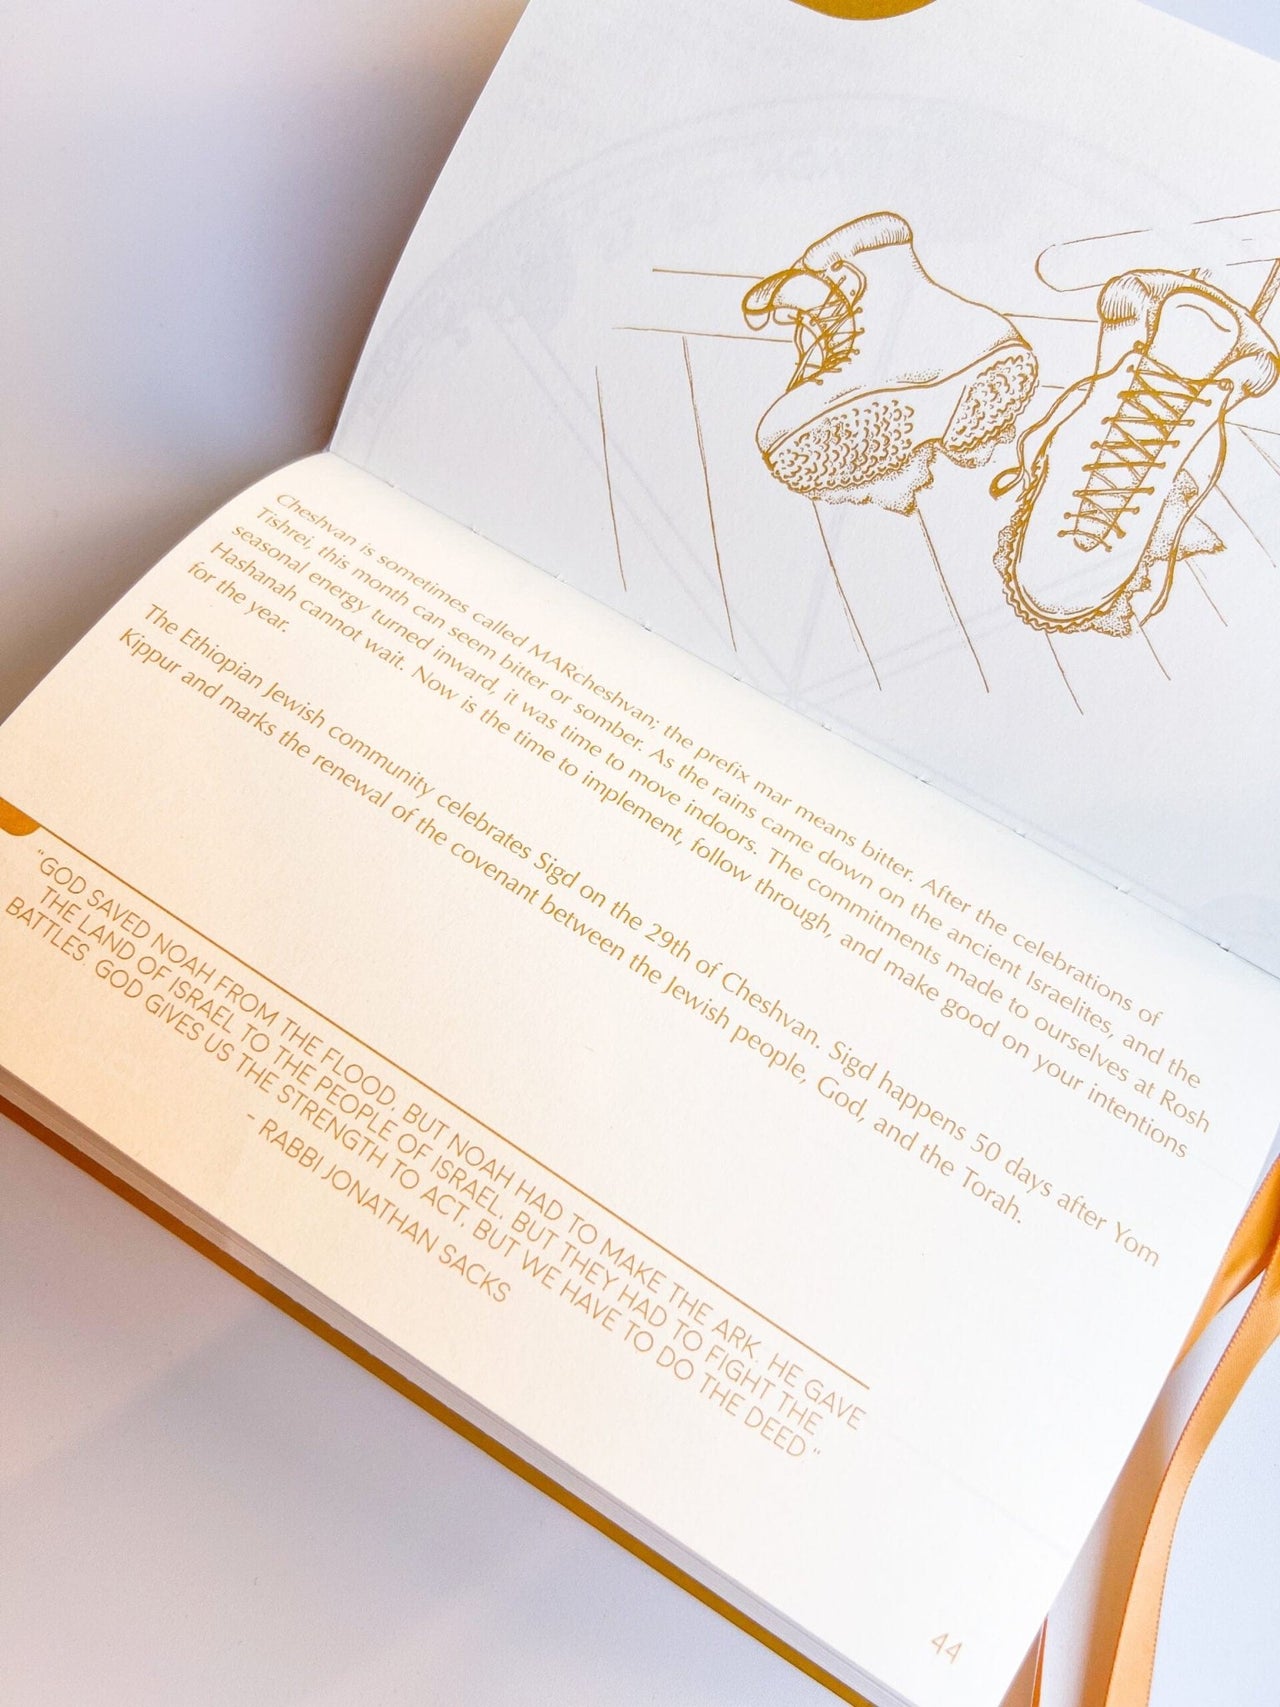 Cheshvan is sometimes called MARcheshvan; the prefix mar means bitter. After the celebrations of
Tishrei, this month can seem bitter or somber. As the rains came down on the ancient Israelites, and the
seasonal energy turned inward, it was time to move indoors. The commitments made to ourselves at Rosh
Hashanah cannot wait. Now is the time to implement, follow through, and make good on your intentions
for the year.
The Ethiopian Jewish community celebrates Sigd on the 29th of Cheshvan. Sigd happens 50 days after Yom
Kippur and marks the renewal of the covenant between the Jewish people, God, and the Torah.
"GOD SAVED NOAH FROM THE FLOOD, BUT NOAH HAD TO MAKE THE ARK. HE GAVE
THE LAND OF ISRAEL TO THE PEOPLE OF ISRAEL, BUT THEY HAD TO FIGHT THE
BATTLES. GOD GIVES US THE STRENGTH TO ACT, BUT WE HAVE TO DO THE DEED."
- RABBI JONATHAN SACKS
44